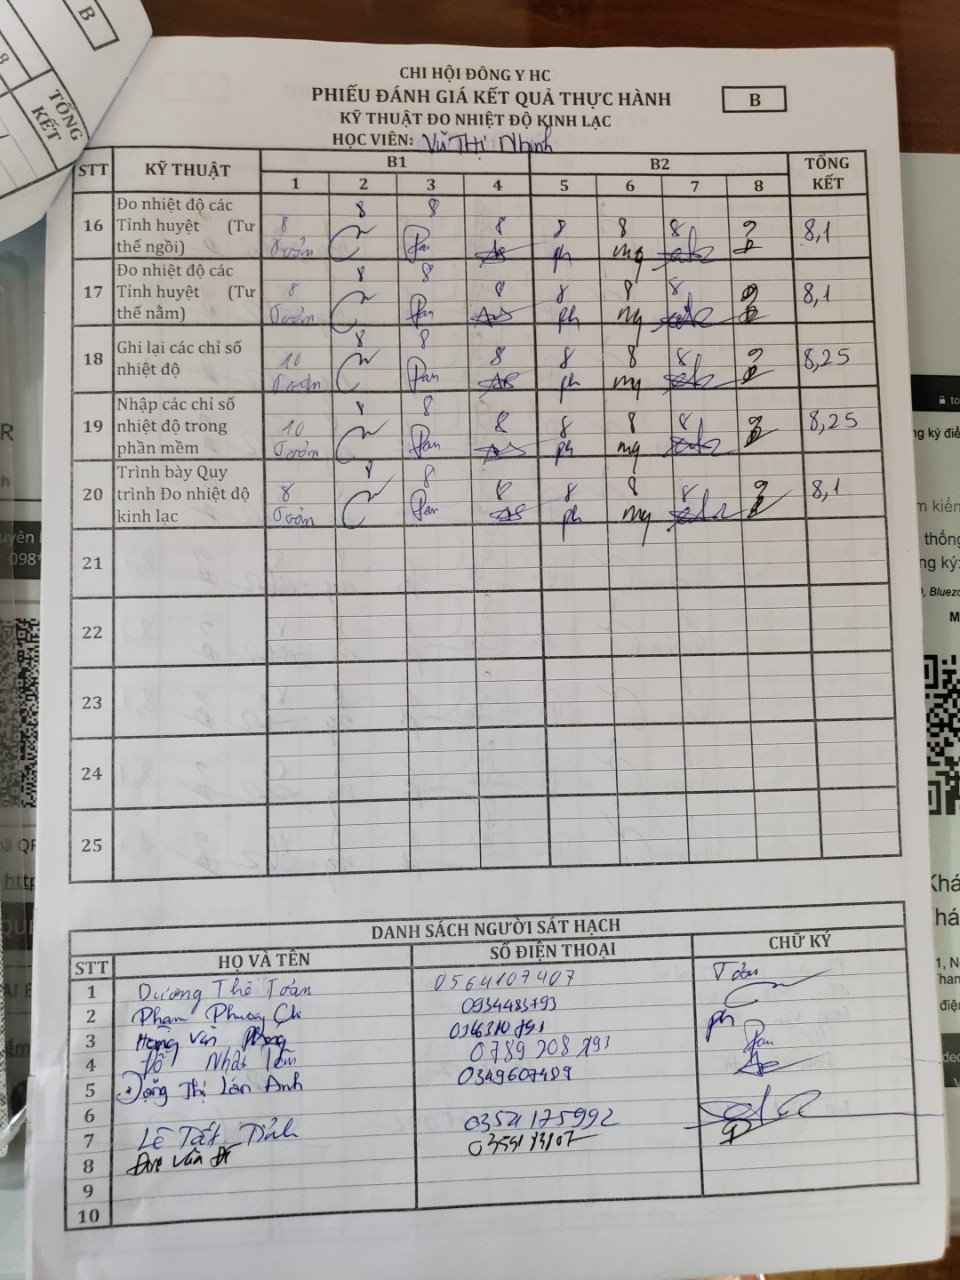 B
8
TỔNG
KẾT
CHI HỘI ĐÔNG Y HC
PHIẾU ĐÁNH GIÁ KẾT QUẢ THỰC HÀNH
B
KỸ THUẬT ĐO NHIỆT ĐỘ KINH LẠC
HỌC VIÊN: Vũ Thị Nhịnh
STT KỸ THUẬT B1 B2 TỔNG KẾT
1 2 3 4 5 6 7 8
16 Đo nhiệt độ các Tỉnh huyệt (Tư thế ngồi) 8 8 8 8 8 8 8 9 8,1
Toản ph mg
17 Đo nhiệt độ các Tỉnh huyệt (Tư thế nằm) 8 8 8 8 8 8 8 9 8,1
Toản ph mg
18 Ghi lại các chỉ số nhiệt độ 10 8 8 8 8 8 8 9 8,25
Toản ph mg
19 Nhập các chỉ số nhiệt độ trong phần mềm 10 8 8 8 8 8 8 9 8,25
Toản ph mg
20 Trình bày Quy trình Đo nhiệt độ kinh lạc 8 8 8 8 8 8 8 9 8,1
Toản ph mg
21
22
23
24
25
DANH SÁCH NGƯỜI SÁT HẠCH
STT HỌ VÀ TÊN SỐ ĐIỆN THOẠI CHỮ KÝ
1 Dương Thế Toản 0564107407 Toản
2 Phạm Phương Chi 0934483793
3 Hoàng Văn Phong ph
4 Đỗ Nhất Tâm 0789208293
5 Đặng Thị Lan Anh 0349607489
6
7 Lê Tất Đỉnh
8 Văn
9
10